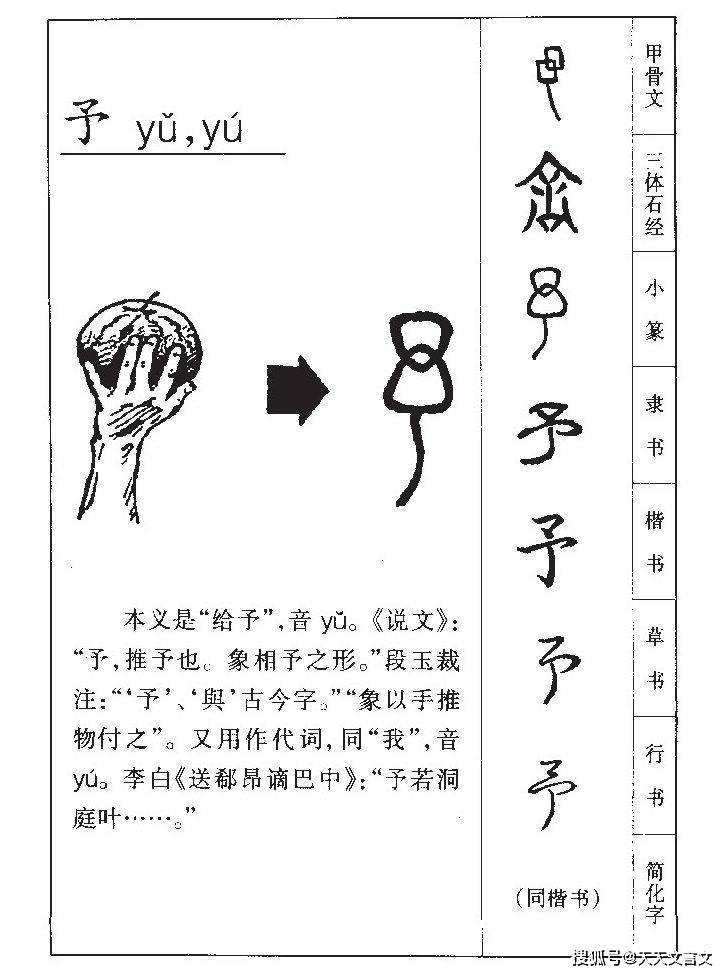 予 yǔ,yú
本义是“给予”,音 yǔ。《说文》:
“予,推予也。象相予之形。”段玉裁
注:“‘予’、‘與’古今字。”“象以手推
物付之”。又用作代词,同“我”,音
yú。李白《送郗昂谪巴中》:“予若洞
庭叶……。”
甲骨文
三体石经
小篆
隶书
予
楷书
予
草书
予
行书
予
简化字
(同楷书)
搜狐号@天天文言文